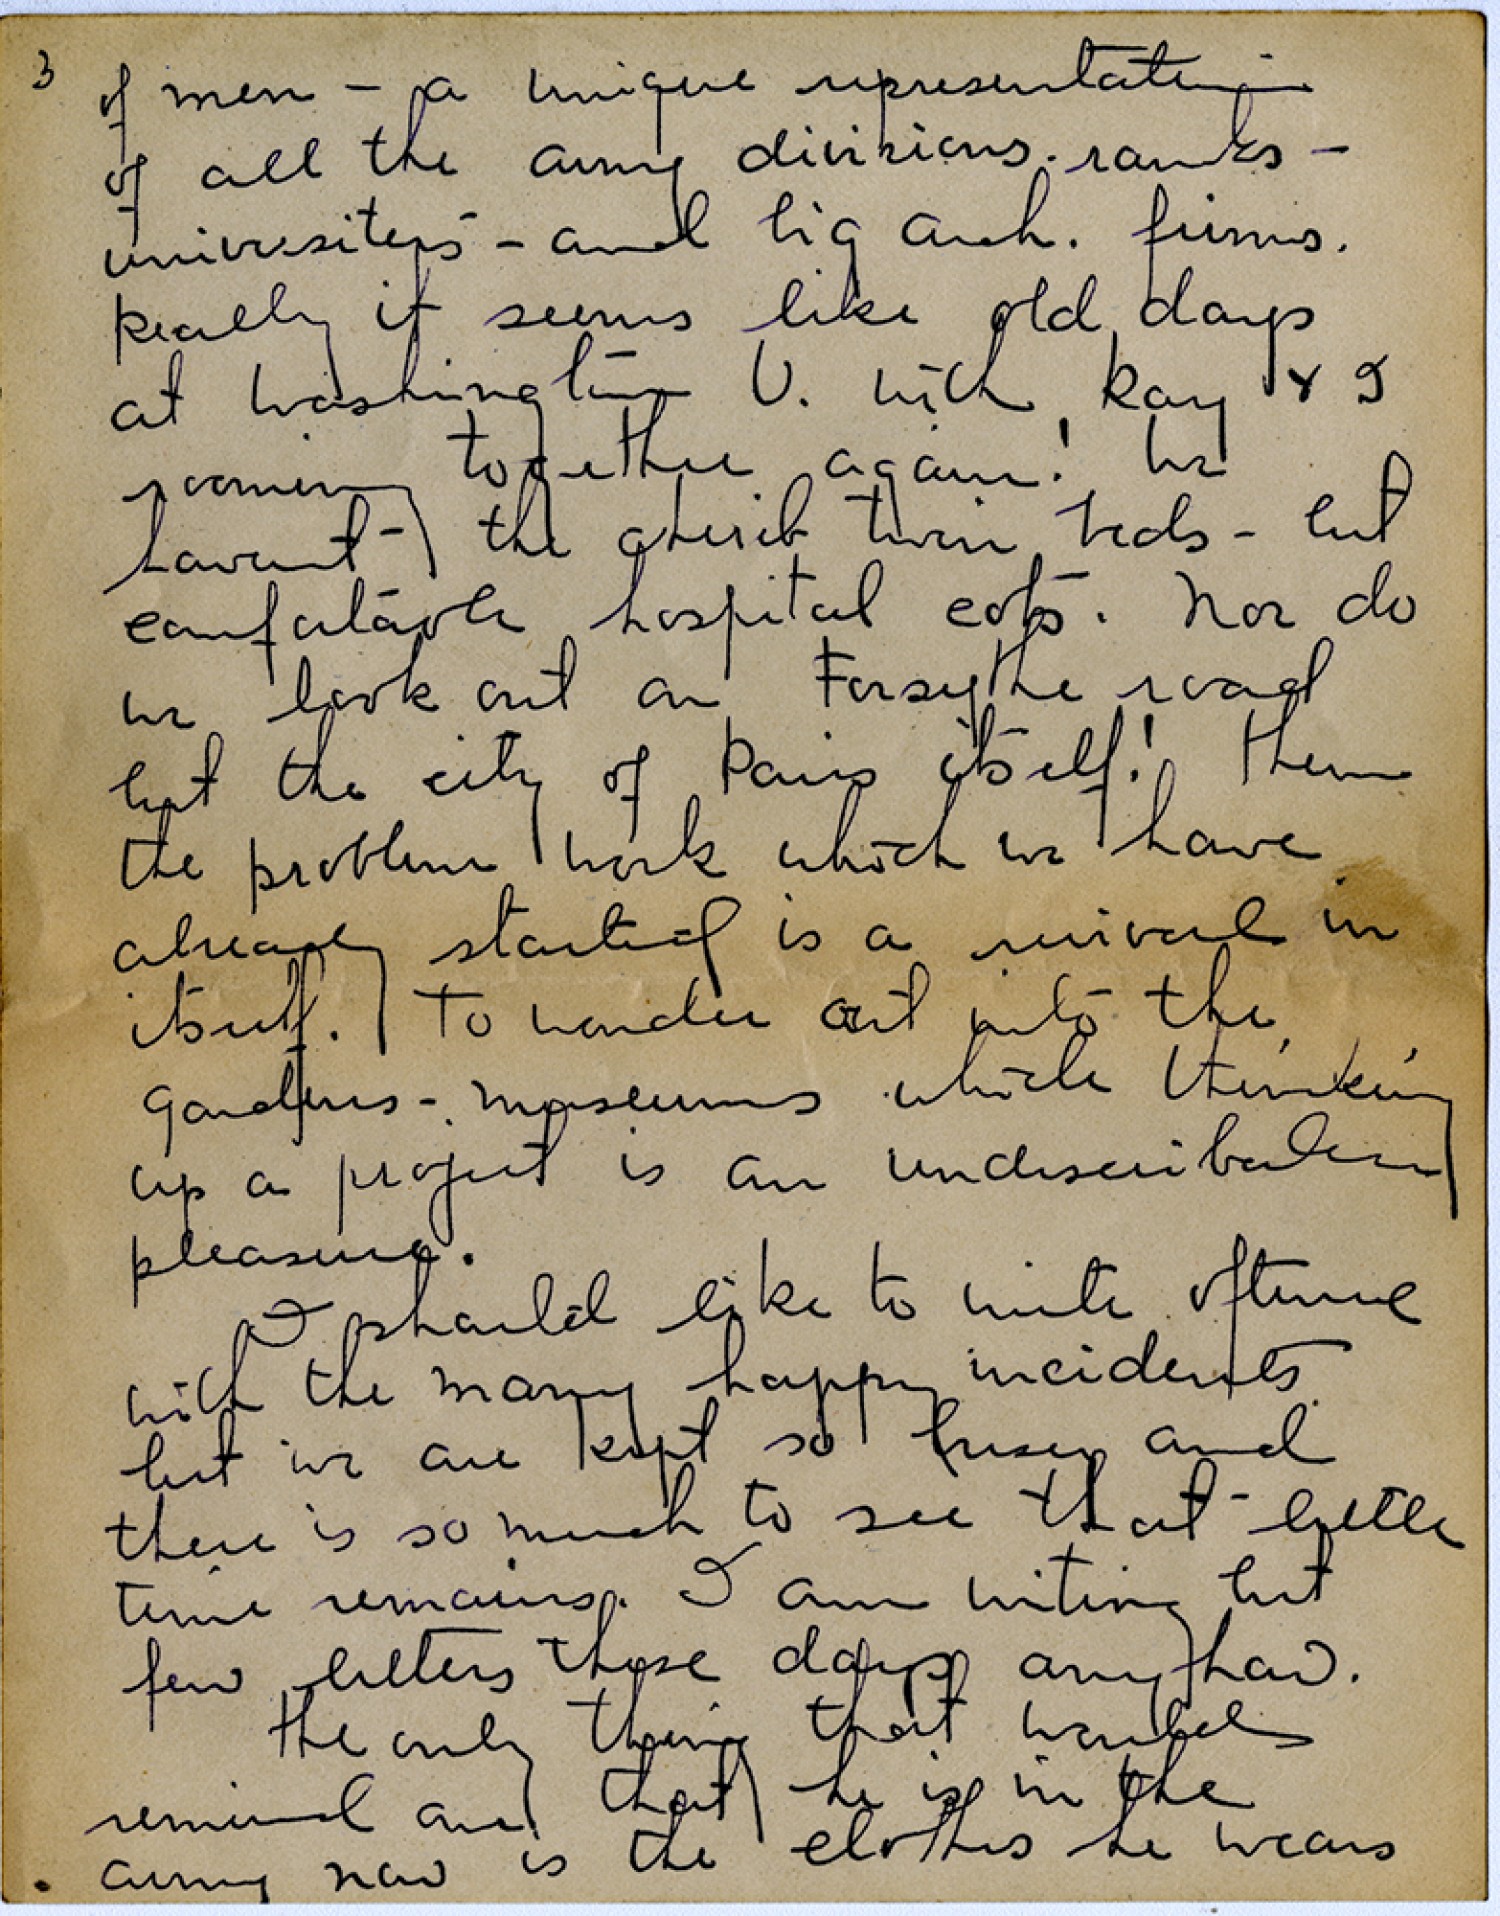 3
of men - a unique representation
of all the army divisions. ranks -
universitys - and big arch. firms.
Really it seems like old days
at Washington U. with Ray & I
rooming together again! We
havent - the twin beds - but
comfortable hospital cots. Nor do
we look out on Forsythe road
but the city of Paris itself! Then
the problem work which we have
already started is a revival in
itself. To wander out into the
gardens - museums while thinking
up a project is an
pleasure.
I should like to write oftener
with the many happy incidents
but we are kept so busy and
there is so much to see that - little
time remains. I am writing but
few letters these days anyhow.
The only thing that would
remind one that he is in the
army now is the clothes he wears